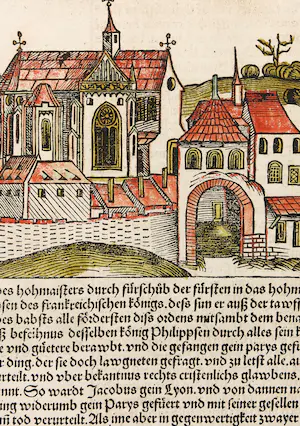 des hohmaisters durch fürschüb der fürsten in das hohm
sen des franckreichischen königs. deß sun er auß der tawff
es babsts alle fördersten diß ordens mitsambt dem bena
ß befcihnus desselben könig Philippsen durch alles sein k
e vnd güetere berawbt. vnd die gefangen gein parys gefü
er ding. der sie doch lawgneten gefragt. vnd zu letst alle. au
erteilt. vnd vber bekantnus rechts cristenlichs glawbens.
nnt. So wardt Jacobus gein Lyon. vnd von dannen na
ung widerumb gein Parys gefüert vnd mit seiner gesellen
m tod verurteilt. Als ime aber in gegenwertigkeit zwayer